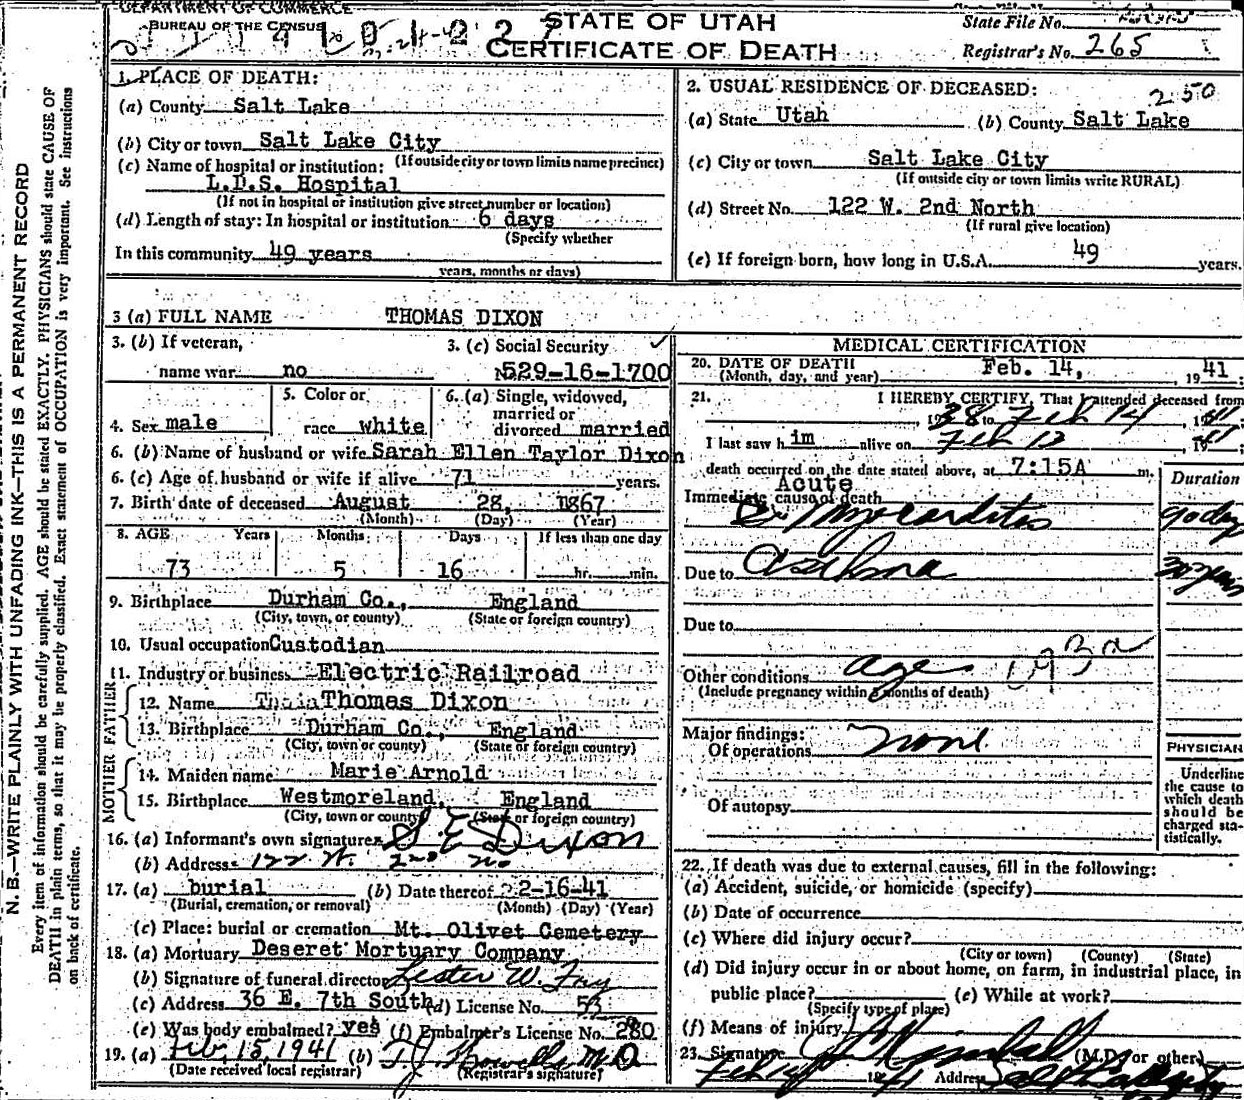 DEPARTMENT OF COMMERCE
BUREAU OF THE CENSUS
STATE OF UTAH
CERTIFICATE OF DEATH
State File No.
Registrar's No. 265
1. PLACE OF DEATH:
(a) County Salt Lake
(b) City or town Salt Lake City
(If outside city or town limits name precinct)
(c) Name of hospital or institution:
L.D.S. Hospital
(If not in hospital or institution give street number or location)
(d) Length of stay: In hospital or institution 6 days
(Specify whether
In this community 49 years
years, months or days)
2. USUAL RESIDENCE OF DECEASED:
250
(a) State Utah (b) County Salt Lake
(c) City or town Salt Lake City
(If outside city or town limits write RURAL)
(d) Street No. 122 W. 2nd North
(If rural give location)
(e) If foreign born, how long in U.S.A. 49 years.
3 (a) FULL NAME THOMAS DIXON
3. (b) If veteran,
name war no
3. (c) Social Security
No. 529-16-1700
4. Sex male
5. Color or
race white
6. (a) Single, widowed,
married or
divorced married
6. (b) Name of husband or wife Sarah Ellen Taylor Dixon
6. (c) Age of husband or wife if alive 71 years.
7. Birth date of deceased August 28, 1867
(Month) (Day) (Year)
8. AGE Years Months Days If less than one day
73 5 16 hr. min.
9. Birthplace Durham Co., England
(City, town, or county) (State or foreign country)
10. Usual occupation Custodian
11. Industry or business Electric Railroad
FATHER
12. Name Thomas Dixon
13. Birthplace Durham Co., England
(City, town or county) (State or foreign country)
MOTHER
14. Maiden name Marie Arnold
15. Birthplace Westmoreland, England
(City, town or county) (State or foreign country)
16. (a) Informant's own signature S E Dixon
(b) Address 122 W. 2nd No
17. (a) burial (b) Date thereof 2-16-41
(Burial, cremation, or removal) (Month) (Day) (Year)
(c) Place: burial or cremation Mt. Olivet Cemetery
18. (a) Mortuary Deseret Mortuary Company
(b) Signature of funeral director Lester W. Fry
(c) Address 36 E. 7th South (d) License No. 53
(e) Was body embalmed? yes (f) Embalmer's License No. 280
19. (a) Feb. 15, 1941 (b) T.J. Howells M.D.
(Date received local registrar) (Registrar's signature)
MEDICAL CERTIFICATION
20. DATE OF DEATH
(Month, day, and year) Feb. 14, 1941.
21. I HEREBY CERTIFY, That I attended deceased from
1938 to Feb 14, 1941
I last saw him alive on Feb 13, 1941
death occurred on the date stated above, at 7:15A m.
Duration
Acute
Immediate cause of death
Myocarditis 90 days
Due to Asthma 30 years
Due to
Other conditions age
(Include pregnancy within 3 months of death)
Major findings:
Of operations none
Of autopsy
PHYSICIAN
Underline
the cause to
which death
should be
charged sta-
tistically.
22. If death was due to external causes, fill in the following:
(a) Accident, suicide, or homicide (specify)
(b) Date of occurrence
(c) Where did injury occur?
(City or town) (County) (State)
(d) Did injury occur in or about home, on farm, in industrial place, in
public place? (e) While at work?
(Specify type of place)
(f) Means of injury
23. Signature (M.D. or other)
Address
N. B.—WRITE PLAINLY WITH UNFADING INK—THIS IS A PERMANENT RECORD
Every item of information should be carefully supplied. AGE should be stated EXACTLY. PHYSICIANS should state CAUSE OF
DEATH in plain terms, so that it may be properly classified. Exact statement of OCCUPATION is very important. See instructions
on back of certificate.